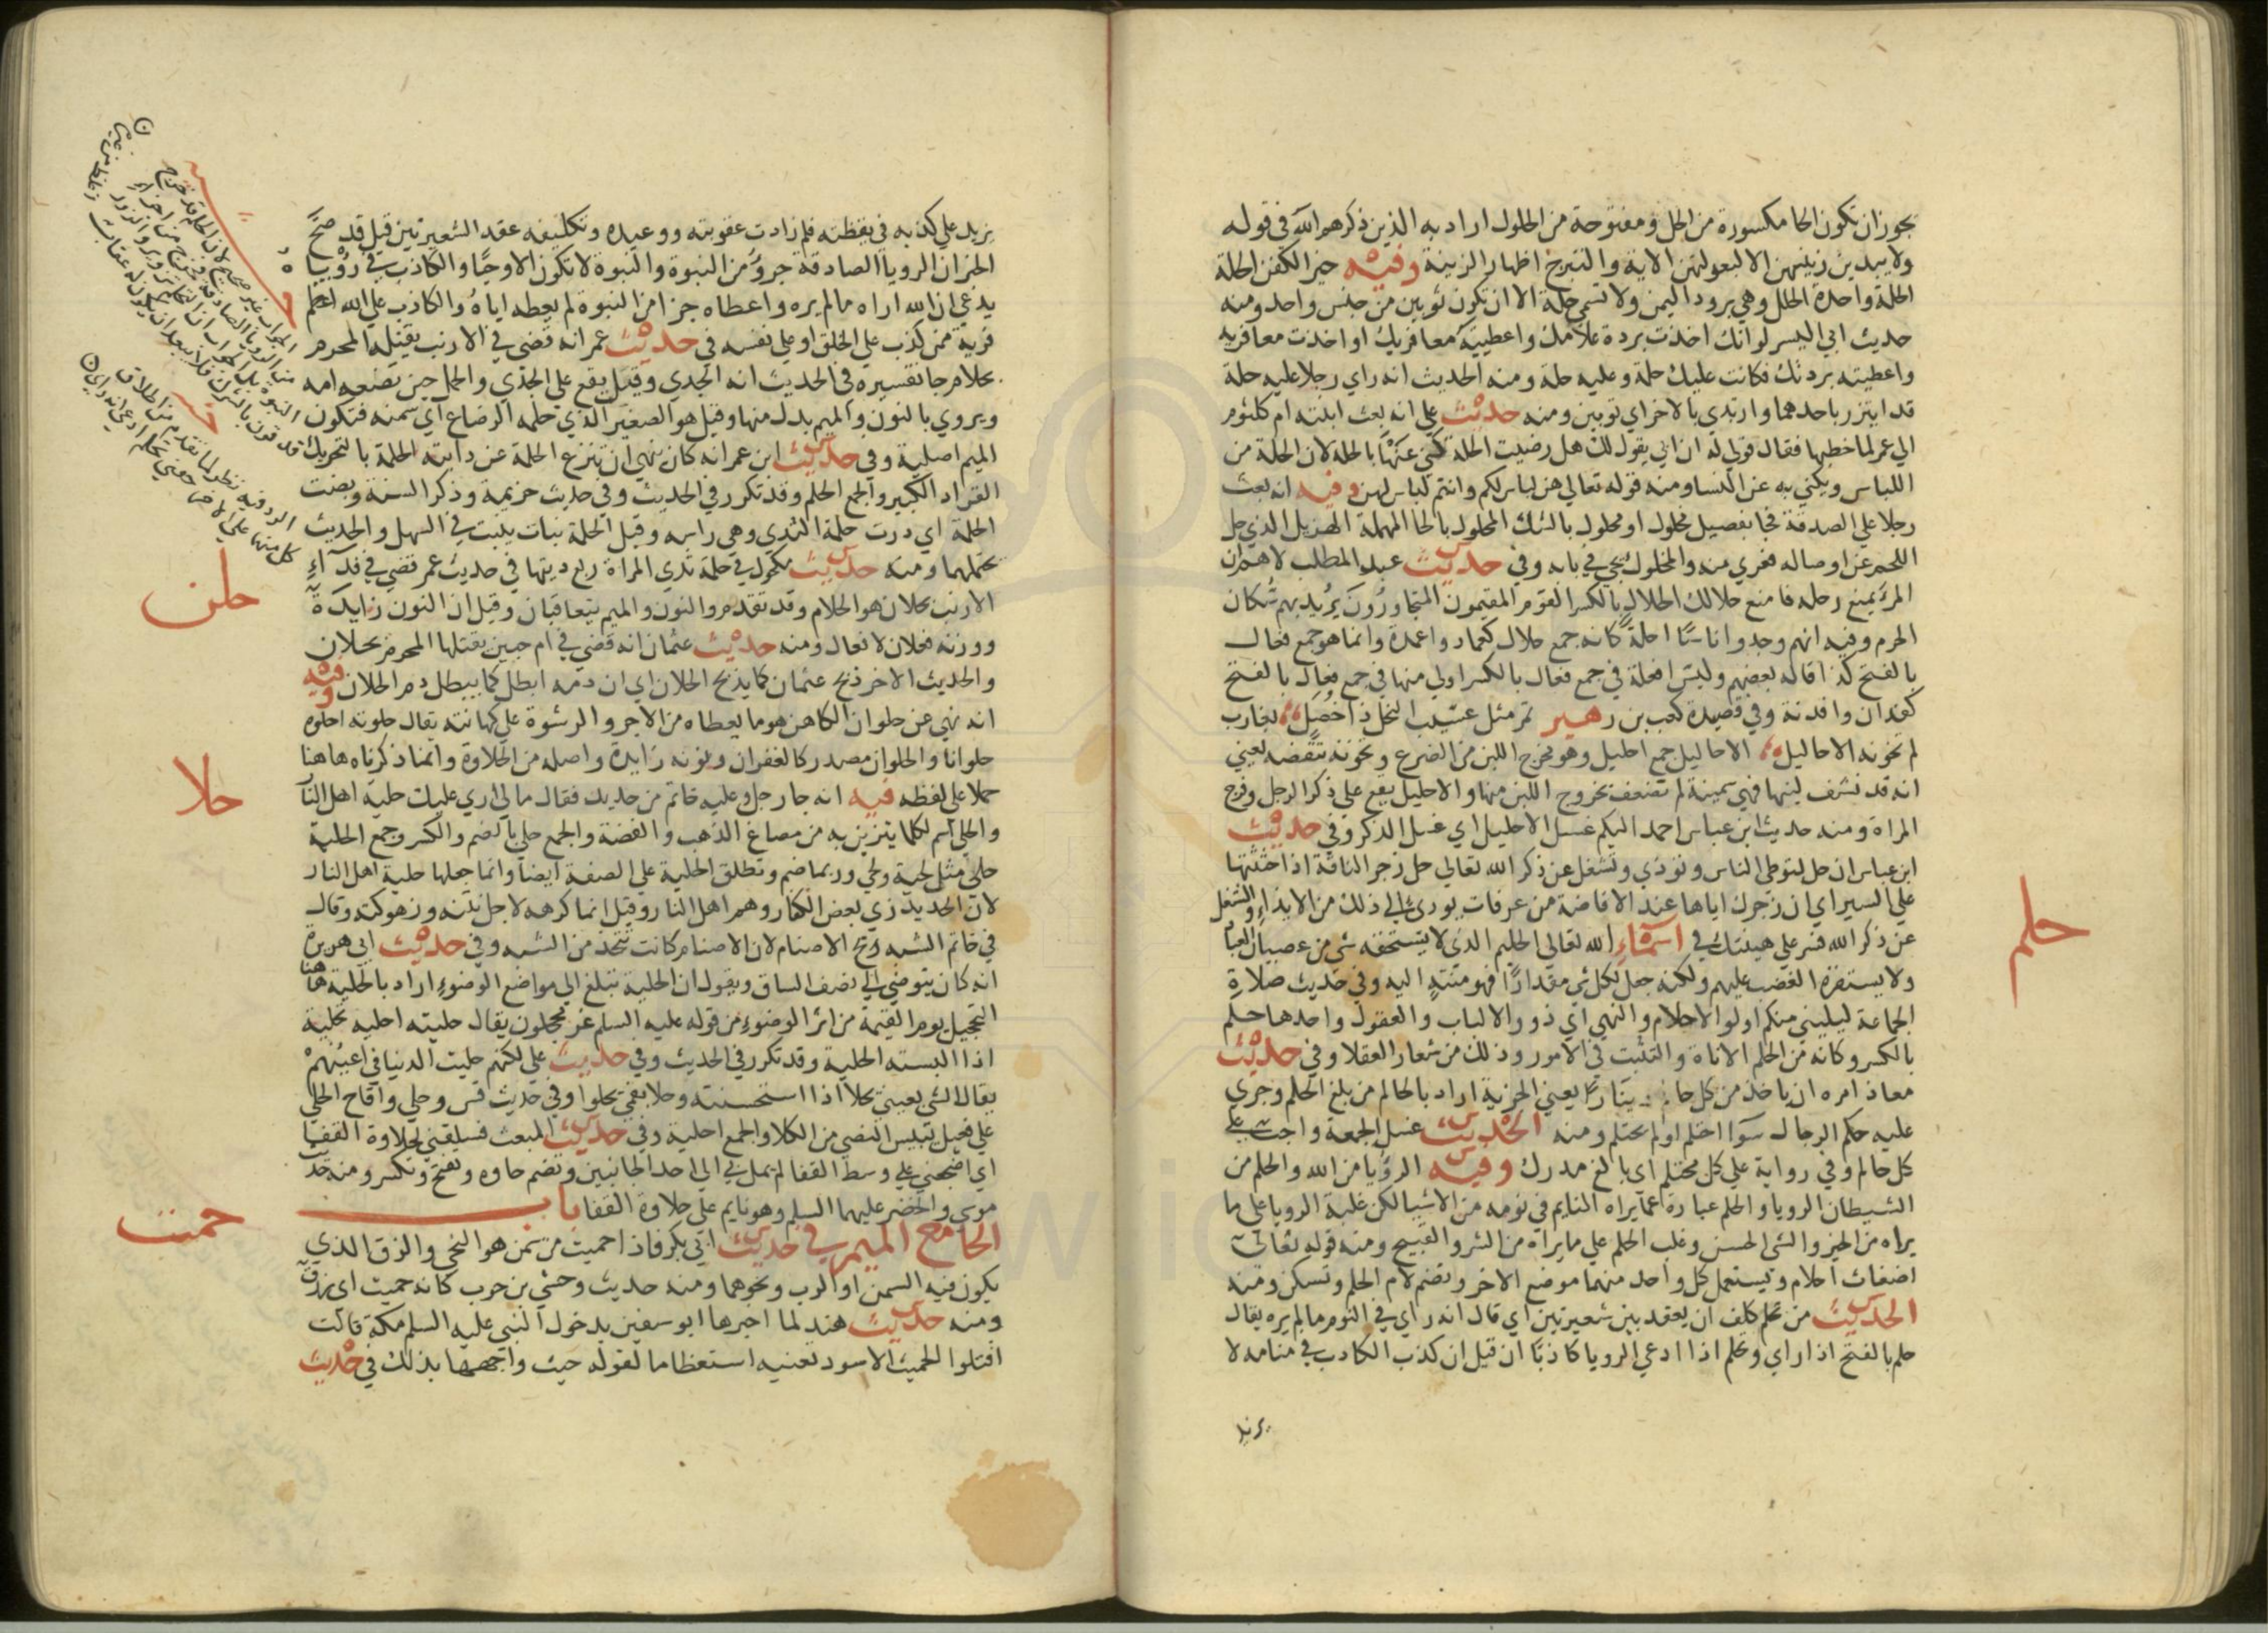 يجوز ان تكون الحا مكسورة من الحل ومفتوحة من الحلول اراد به الذين ذكرهم الله في قوله
ولا يبدين زينتهن الا لبعولتهن الاية والتبرج اظهار الزينة وفيه خير الكفن الحلة
الحلة واحدة الحلل وهي برود اليمن ولا تسمي حلة الا ان تكون ثوبين من جنس واحد ومنه
حديث ابي اليسر لو انك اخذت بردة غلامك واعطيته معافريك او اخذت معافريه
واعطيته بردتك فكانت عليك حلة وعليه حلة ومنه الحديث انه راي رجلا عليه حلة
قد ايتزر باحدهما وارتدي بالاخر اي ثوبين ومنه حديث علي انه بعث ابنته ام كلثوم
الي عمر لما خطبها فقال قولي له ان ابي يقول لك هل رضيت الحلة كني عنها بالحلة لان الحلة من
اللباس ويكني به عن النسا ومنه قوله تعالي هن لباس لكم وانتم لباس لهن وفيه انه بعث
رجلا علي الصدقة فجا بفصيل مخلول او محلول بالشك المحلول بالحا المهملة الهزيل الذي حل
اللحم عن اوصاله فعري منه والمخلول يجي في بابه وفي حديث عبد المطلب لاهم ان
المرء يمنع رحله فامنع حلالك الحلال بالكسر القوم المقيمون المتجاورون يريد بهم سكان
الحرم وفيه انهم وجدوا ناسا احلة كانه جمع حلال كعماد واعمدة وانما هو جمع فعال
بالفتح كذا قاله بعضهم وليس افعلة في جمع فعال بالكسر اولي منها في جمع فعال بالفتح
كفدان وافدنة وفي قصيدة كعب بن زهير تمر مثل عسيب النخل ذا خصل بغارب
لم تخونه الاحاليل الاحاليل جمع احليل وهو مخرج اللبن من الضرع وتخونه تنقصه يعني
انه قد نشف لبنها فهي سمينة لم تضعف بخروج اللبن منها والاحليل يقع علي ذكر الرجل وفرج
المراة ومنه حديث ابن عباس احمد اليكم غسل الاحليل اي غسل الذكر وفي حديث
ابن عباس ان حل لتوطي الناس وتوذي وتشغل عن ذكر الله تعالي حل زجر الناقة اذا حثثتها
علي السير اي ان زجرك اياها عند الافاضة من عرفات يودي الي ذلك من الايذاء والشغل
عن ذكر الله فسر علي هينتك في اسماء الله تعالي الحليم الذي لا يستخفه شي من عصيان العباد
ولا يستفزه الغضب عليهم ولكنه جعل لكل شي مقدارا فهو منته اليه وفي حديث صلاة
الجماعة ليليني منكم اولوا الاحلام والنهي اي ذووا الالباب والعقول واحدها حلم
بالكسر وكانه من الحلم الاناة والتثبت في الامور وذلك من شعار العقلا وفي حديث
معاذ امره ان ياخذ من كل حالم دينارا يعني الجزية اراد بالحالم من بلغ الحلم وجري
عليه حكم الرجال سوا احتلم او لم يحتلم ومنه الحديث غسل الجمعة واجب علي
كل حالم وفي رواية علي كل محتلم اي بالغ مدرك وفيه الرؤيا من الله والحلم من
الشيطان الرويا والحلم عبارة عما يراه النايم في نومه من الاشيا لكن غلبت الرويا علي ما
يراه من الخير والشي الحسن وغلب الحلم علي ما يراه من الشر والقبيح ومنه قوله تعالي
اضغاث احلام ويستعمل كل واحد منهما موضع الاخر وتضم لام الحلم وتسكن ومنه
الحديث من تحلم كلف ان يعقد بين شعيرتين اي قال انه راي في النوم ما لم يره يقال
حلم بالفتح اذا راي وتحلم اذا ادعي الرويا كاذبا ان قيل ان كذب الكاذب في منامه لا
يزيد
حلم
يزيد علي كذبه في يقظته فلم زادت عقوبته ووعيده وتكليفه عقد الشعيرتين قيل قد صح
الخبر ان الرويا الصادقة جزؤ من النبوة والنبوة لا تكون الا وحيا والكاذب في رؤيا
يدعي ان الله اراه ما لم يره واعطاه جزا من النبوة لم يعطه اياه والكاذب علي الله اعظم
فرية ممن كذب علي الخلق او علي نفسه في حديث عمر انه قضي في الارنب يقتله المحرم
بحلام جا تفسيره في الحديث انه الجدي وقيل يقع علي الجدي والحمل حين تضعه امه
ويروي بالنون والميم بدل منها وقيل هو الصغير الذي حلمه الرضاع اي سمنه فتكون
الميم اصلية وفي حديث ابن عمر انه كان ينهي ان تنزع الحلمة عن دابته الحلمة بالتحريك
القراد الكبير والجمع الحلم وقد تكرر في الحديث وفي حديث خزيمة وذكر السنة وبضت
الحلمة اي درت حلمة الثدي وهي راسه وقيل الحلمة نبات ينبت في السهل والحديث
يحتملهما ومنه حديث مكحول في حلمة ثدي المراة ربع ديتها في حديث عمر قضي في فدآء
الارنب بحلان هو الحلام وقد تقدم والنون والميم يتعاقبان وقيل ان النون زايدة
ووزنه فعلان لا فعال ومنه حديث عثمان انه قضي في ام حبين يقتلها المحرم بحلان
والحديث الاخر ذبح عثمان كما يذبح الحلان اي ان دمه ابطل كما يبطل دم الحلان وفيه
انه نهي عن حلوان الكاهن هو ما يعطاه من الاجر والرشوة علي كهانته يقال حلوته احلوه
حلوانا والحلوان مصدر كالغفران ونونه زايدة واصله من الحلاوة وانما ذكرناه هاهنا
حملا علي لفظه فيه انه جا رجل وعليه خاتم من حديد فقال ما لي اري عليك حلية اهل النار
والحلي اسم لكل ما يتزين به من مصاغ الذهب والفضة والجمع حلي بالضم والكسر وجمع الحلية
حلي مثل لحية ولحي وربما ضم وتطلق الحلية علي الصفة ايضا وانما جعلها حلية اهل النار
لان الحديد زي بعض الكفار وهم اهل النار وقيل انما كرهه لاجل نتنه وزهوكته وقال
في خاتم الشبه ريح الاصنام لان الاصنام كانت تتخذ من الشبه وفي حديث ابي هريرة
انه كان يتوضي الي نصف الساق ويقول ان الحلية تبلغ الي مواضع الوضوء اراد بالحلية هاهنا
التحجيل يوم القيمة من اثر الوضوء من قوله عليه السلم غر محجلون يقال حليته احليه تحلية
اذا البسته الحلية وقد تكرر في الحديث وفي حديث علي لكنهم حليت الدنيا في اعينهم
يقال الشي بعيني يحلا اذا استحسنته وحلا بفي يحلوا وفي حديث قس وحلي واقاح الحلي
علي فعيل يبيس النصي من الكلا والجمع احلية وفي حديث المبعث فسلقني لحلاوة القفا
اي اضجعني علي وسط القفا لم يمل بي الي احد الجانبين وتضم حاوه وتفتح وتكسر ومنه حديث
موسي والخضر عليهما السلم وهو نايم علي حلاوة القفا باب
الحا مع الميم في حديث ابي بكر فاذا حميت من سمن هو النحي والزق الذي
يكون فيه السمن او الرب ونحوهما ومنه حديث وحشي بن حرب كانه حميت اي زق
ومنه حديث هند لما اخبرها ابو سفين بدخول النبي عليه السلم مكة قالت
اقتلوا الحميت الاسود تعنيه استعظاما لقوله حيث واجهها بذلك في حديث
حلن
حلا
حمت